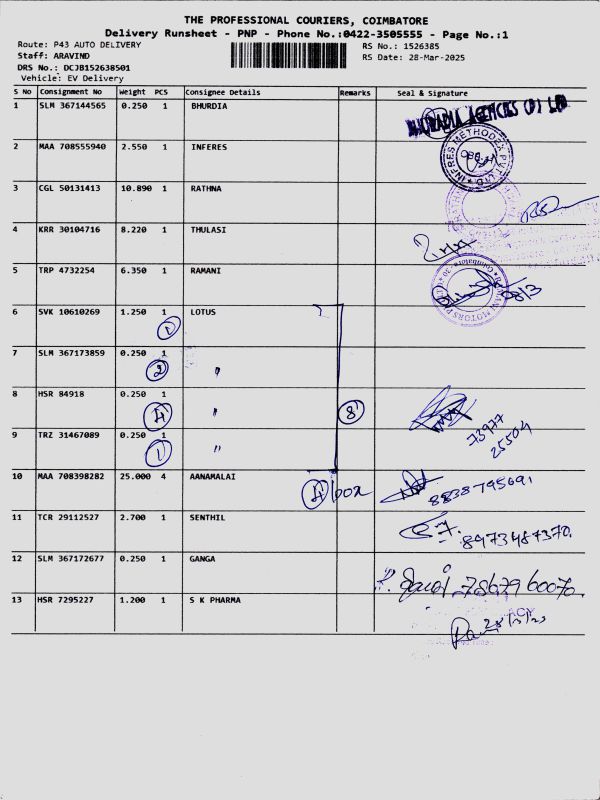 THE PROFESSIONAL COURIERS, COIMBATORE
Delivery Runsheet - PNP - Phone No.:0422-3505555 - Page No.:1
Route: P43 AUTO DELIVERY
Staff: ARAVIND
DRS No.: DCJB152638501
Vehicle: EV Delivery
RS No.: 1526385
RS Date: 28-Mar-2025
S No Consignment No Weight PCS Consignee Details Remarks Seal & Signature
1 SLM 367144565 0.250 1 BHURDIA
2 MAA 708555940 2.550 1 INFERES
3 CGL 50131413 10.890 1 RATHNA
4 KRR 30104716 8.220 1 THULASI
5 TRP 4732254 6.350 1 RAMANI
6 SVK 10610269 1.250 1 LOTUS
1
7 SLM 367173859 0.250 1
2 "
8 HSR 84918 0.250 1
4 " 8
73977
25504
9 TRZ 31467089 0.250 1
1 "
10 MAA 708398282 25.000 4 AANAMALAI
4 box
8838795691
11 TCR 29112527 2.700 1 SENTHIL
8973487370
12 SLM 367172677 0.250 1 GANGA
7867960070
13 HSR 7295227 1.200 1 S K PHARMA